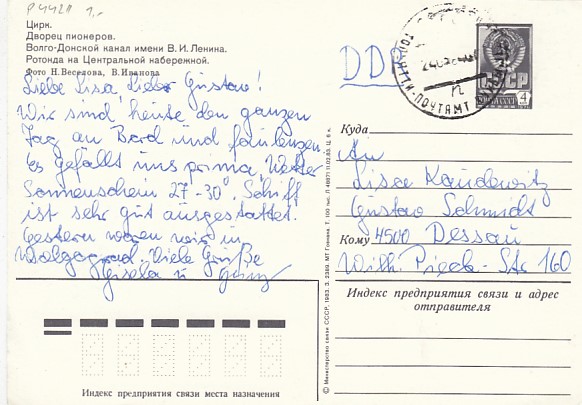 P 4421 1,-
Цирк.
Дворец пионеров.
Волго-Донской канал имени В. И. Ленина.
Ротонда на Центральной набережной.
Фото Н. Веселова, В. Иванова
Liebe Lisa, lieber Gustav!
Wir sind heute den ganzen
Tag an Bord und faulenzen.
Es gefällt uns prima, Wetter
Sonnenschein 27-30°. Schiff
ist sehr gut ausgestattet.
Gestern waren wir in
Wolgograd. Viele Grüße
Gisela u.
DDR
ПОЧТАМТ
СССР
4
Куда
An
Lisa
Gustav Schmidt
Кому 4500 Dessau
Wilh. Pieck-Str. 160
Индекс предприятия связи и адрес
отправителя
Индекс предприятия связи места назначения
© Министерство связи СССР. 1983. З. 2389. МТ Гознака. Т. 100 тыс.